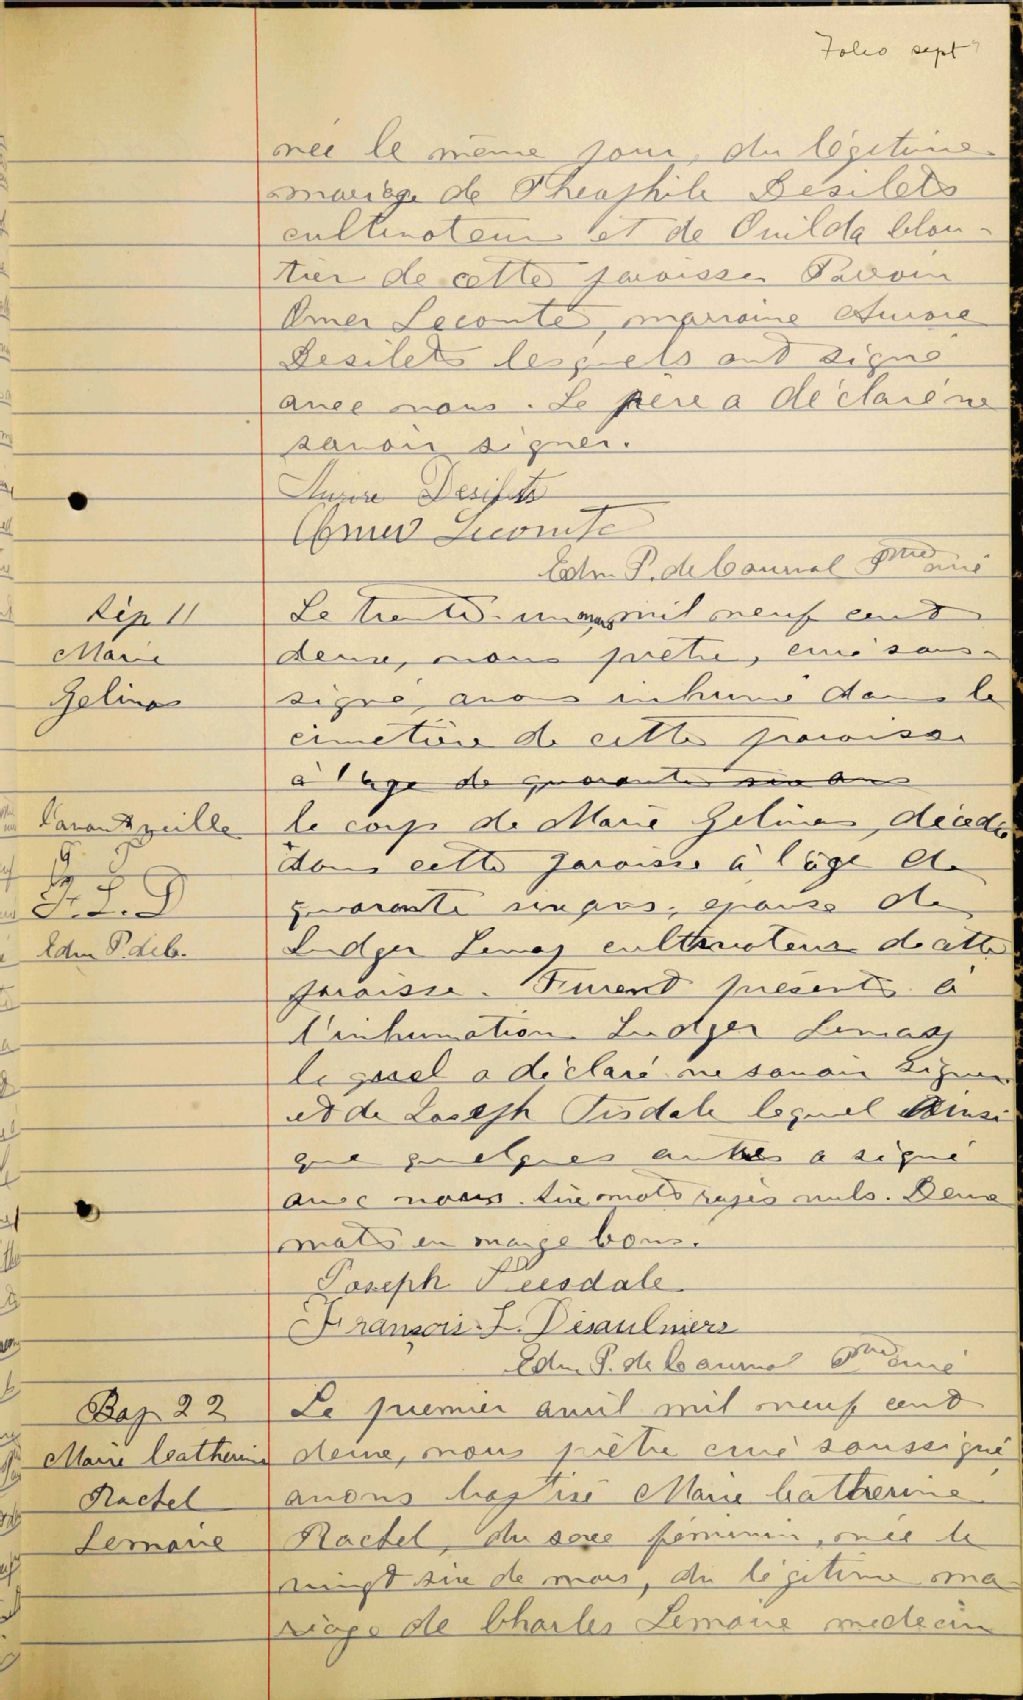 Folio sept
née le même jour, du légitime
mariage de Theophile Desilets
cultivateur et de Exilda Clou-
tier de cette paroisse. Parrain
Omer Lecomte, marraine Aurore
Desilets lesquels ont signé
avec nous. Le père a déclaré ne
savoir signer.
Aurore Desilets
Omer Lecomte
Edm. P. de Courval Ptre curé
Sép 11
Marie
Gelinas
Le trente-un mars mil neuf cent
deux, nous prêtre, curé sous-
signé, avons inhumé dans le
cimetière de cette paroisse
à l'age de quarante six ans
le corps de Marie Gelinas, décédée
l'avant veille
J T
F. L. D
Edm P. de C.
dans cette paroisse à l'âge de
quarante six ans, epouse de
Ludger Lemay cultivateur de cette
paroisse. Furent présents à
l'inhumation Ludger Lemay
lequel a déclaré ne savoir signer
et de Joseph Tisdale lequel ainsi
que quelques autres a signé
avec nous. Six mots rayés nuls. Deux
mots en marge bons.
Joseph Teesdale
François L. Désaulniers
Edm. P. de Courval Ptre curé
Bap 22
Marie Catherine
Rachel
Lemaire
Le premier avril mil neuf cent
deux, nous prêtre curé soussigné
avons baptisé Marie Catherine
Rachel, du sexe féminin, née le
vingt six de mars, du légitime ma-
riage de Charles Lemaire medecin